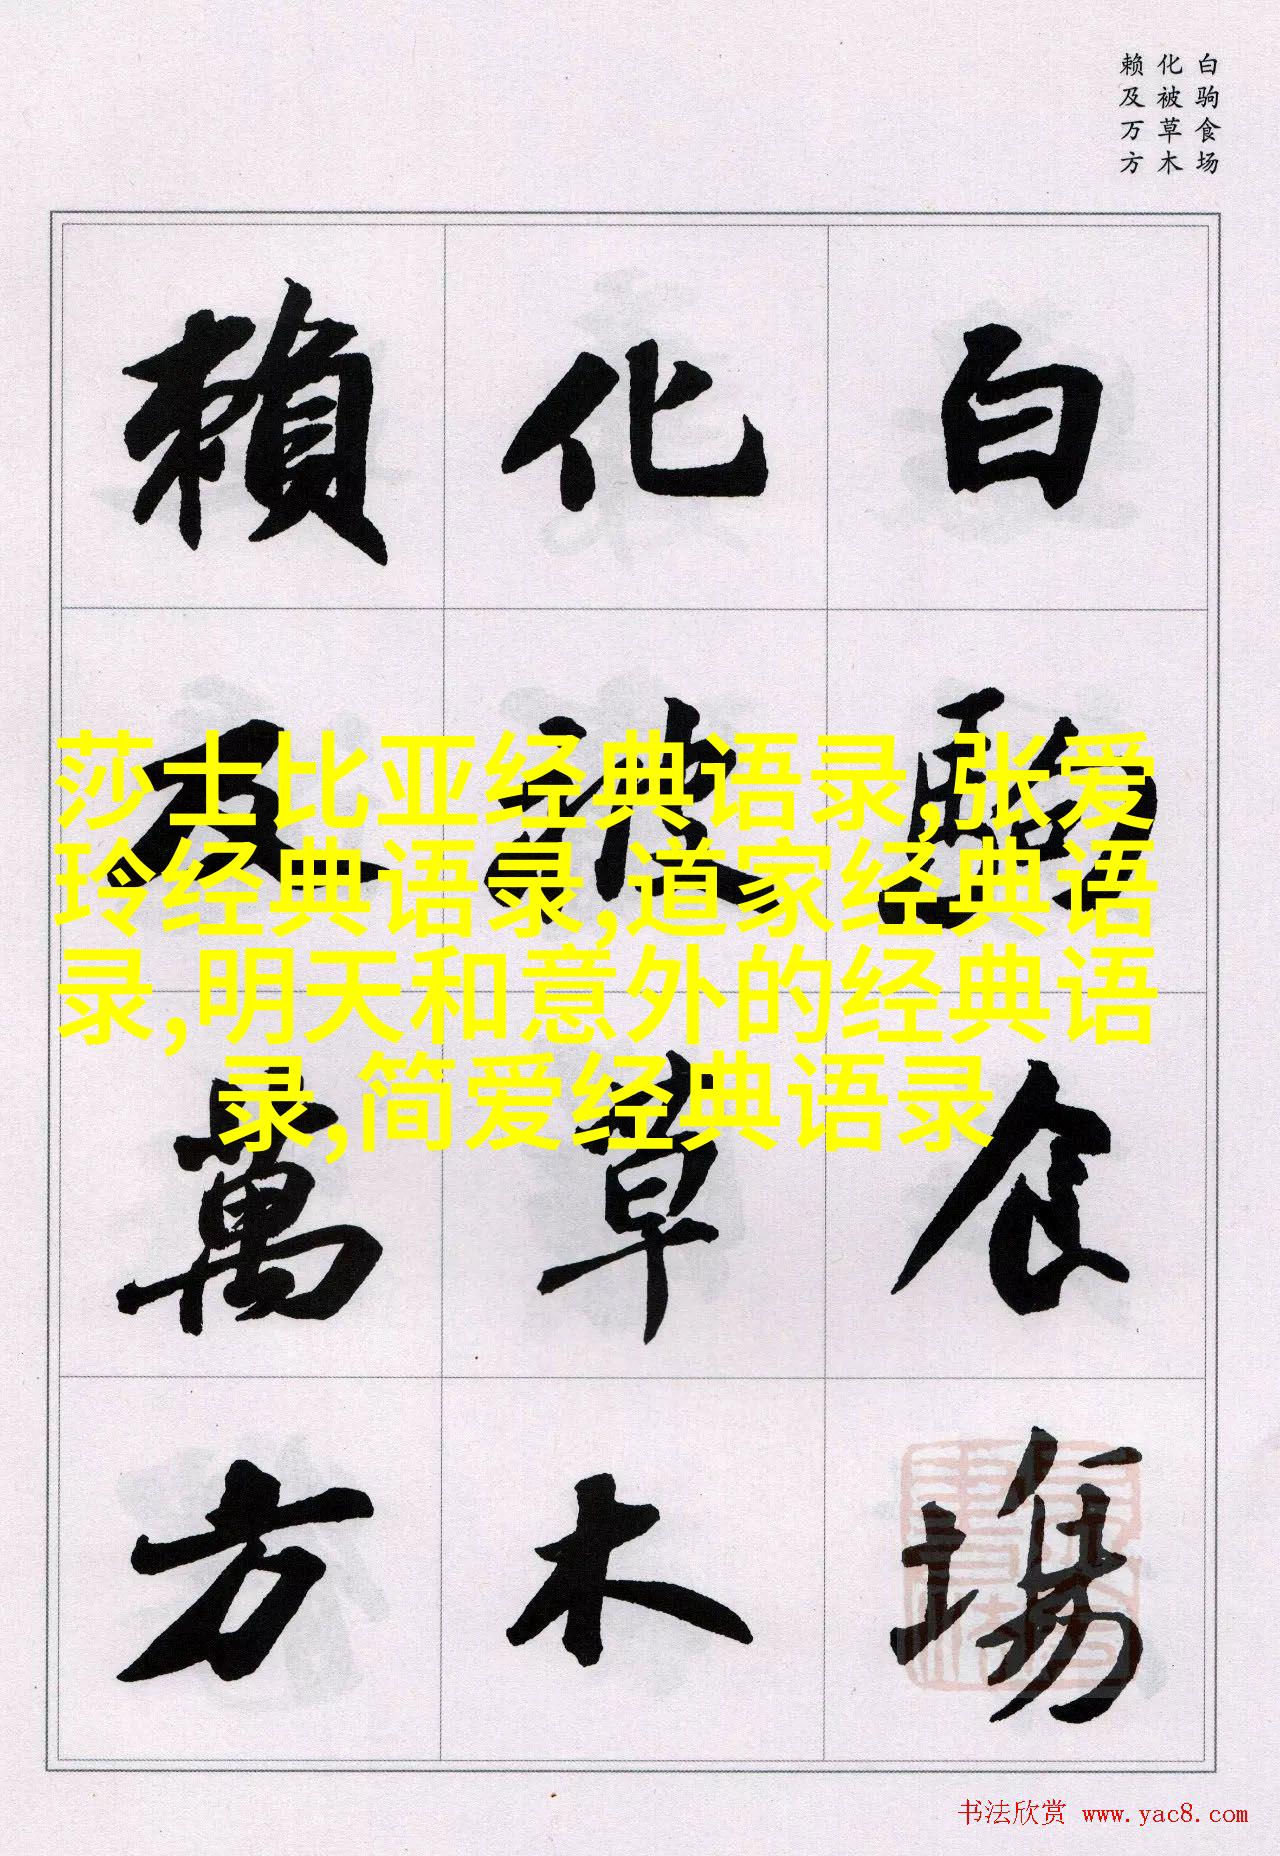 白驹食场
化被草木
赖及万方
白駒食場
化被草木
賴及萬方
莎士比亚经典语录,张爱
玲经典语录,道家经典语
录,明天和意外的经典语
录,简爱经典语录
书法欣赏 www.yac8.com